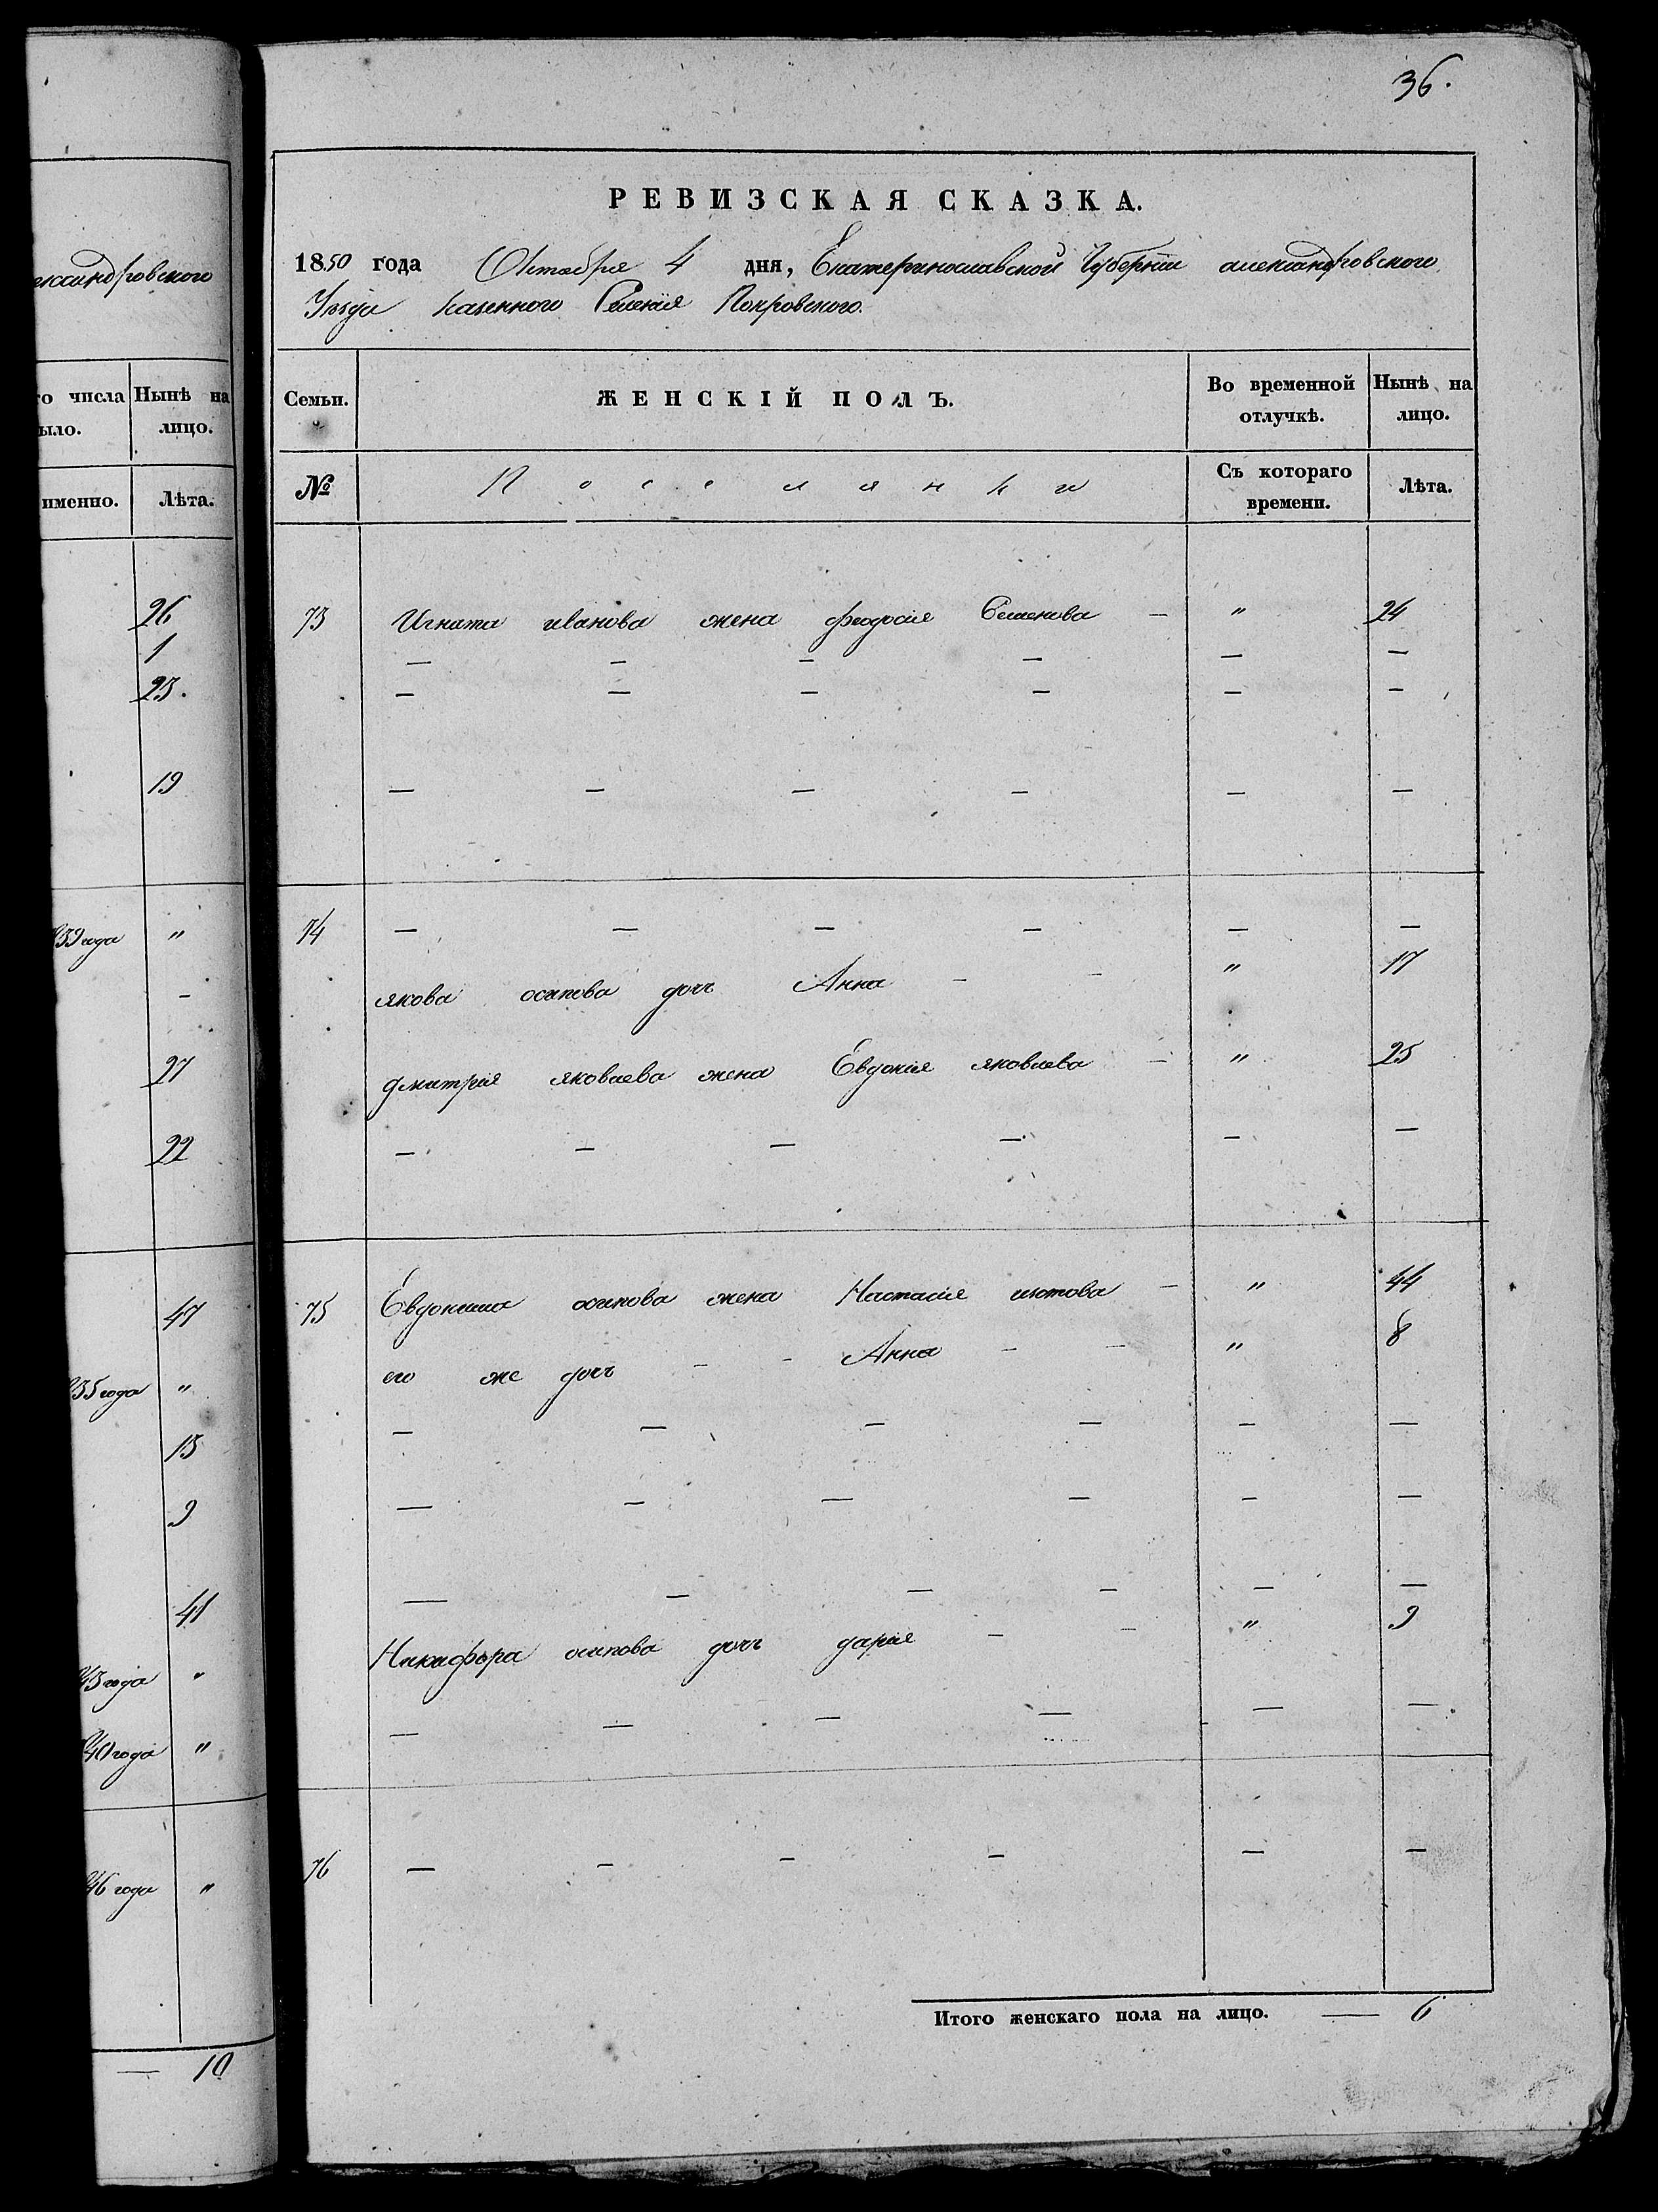 ександровского
го числа Нынѣ на
ыло. лицо.
именно. Лѣта.
26
1
23.
19
39 года "
-
27
22
47
35 года "
13
9
41
43 года "
40 года "
46 года "
— 10
36.
РЕВИЗСКАЯ СКАЗКА.
1850 года Октября 4 дня, Екатеринославской Губернии александровского
Уѣзда казенного Селения Покровского.
Семьи. ЖЕНСКІЙ ПОЛЪ. Во временной отлучкѣ. Нынѣ на лицо.
№ Поселянки Съ котораго времени. Лѣта.
73 Игната иванова жена феодосия Семенова — " 24
— — — — — —
— — — — — —
— — — — — —
74 — — — — — —
якова осипова дочь Анна — — " 17
дмитрия яковлева жена Евдокия яковлева — " 25
— — — — — —
75 Евдокима осипова жена Настасия — " 44
его же дочь — — Анна — — " 8
— — — — — —
— — — — — —
— — — — — —
Никифора осипова дочь дария — — " 9
— — — — — —
76 — — — — — —
Итого женскаго пола на лицо. — 6